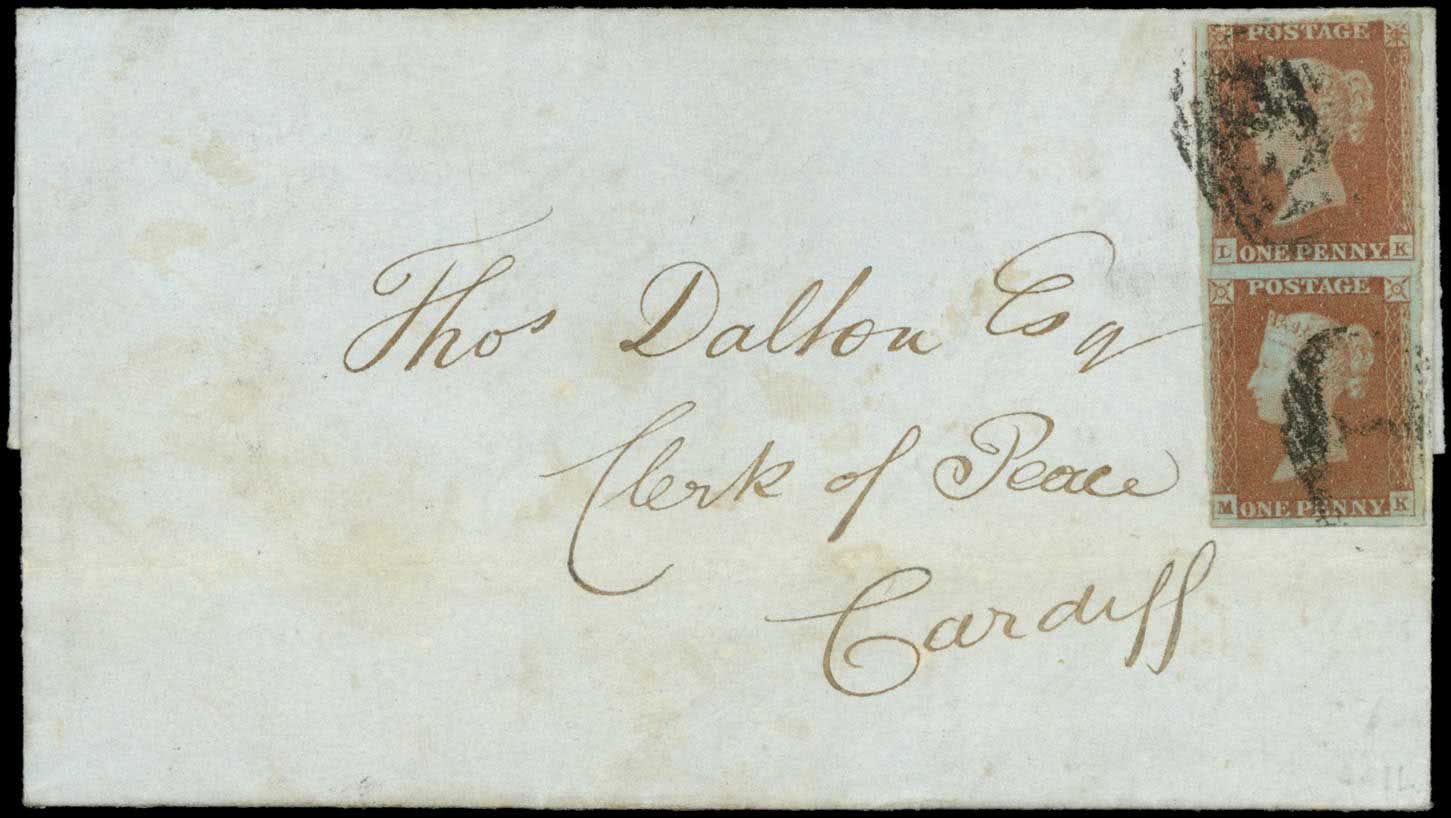 POSTAGE
L ONE PENNY. K
POSTAGE
M ONE PENNY. K
Thos Dalton Esq
Clerk of Peace
Cardiff